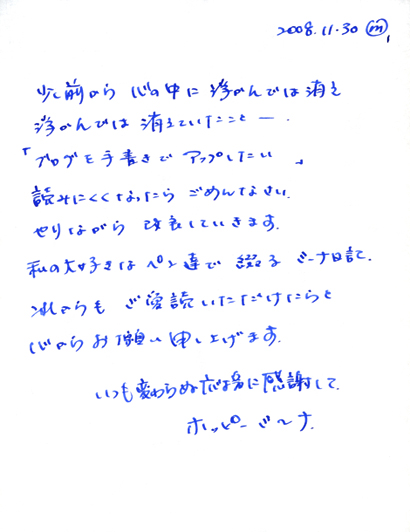 2008.11.30 ⓜ
少し前から 心の中に 浮かんでは消え
浮かんでは 消えていたこと ー.
「ブログを手書きで アップしたい 」
読みにくくなったら ごめんなさい.
やりながら 改良していきます.
私の大好きな ペン達で 綴る ミーナ日記.
これからも ご愛読いただけたらと
心から お願い 申し上げます.
いつも変わらぬ応援に感謝して.
ホッピーミーナ.